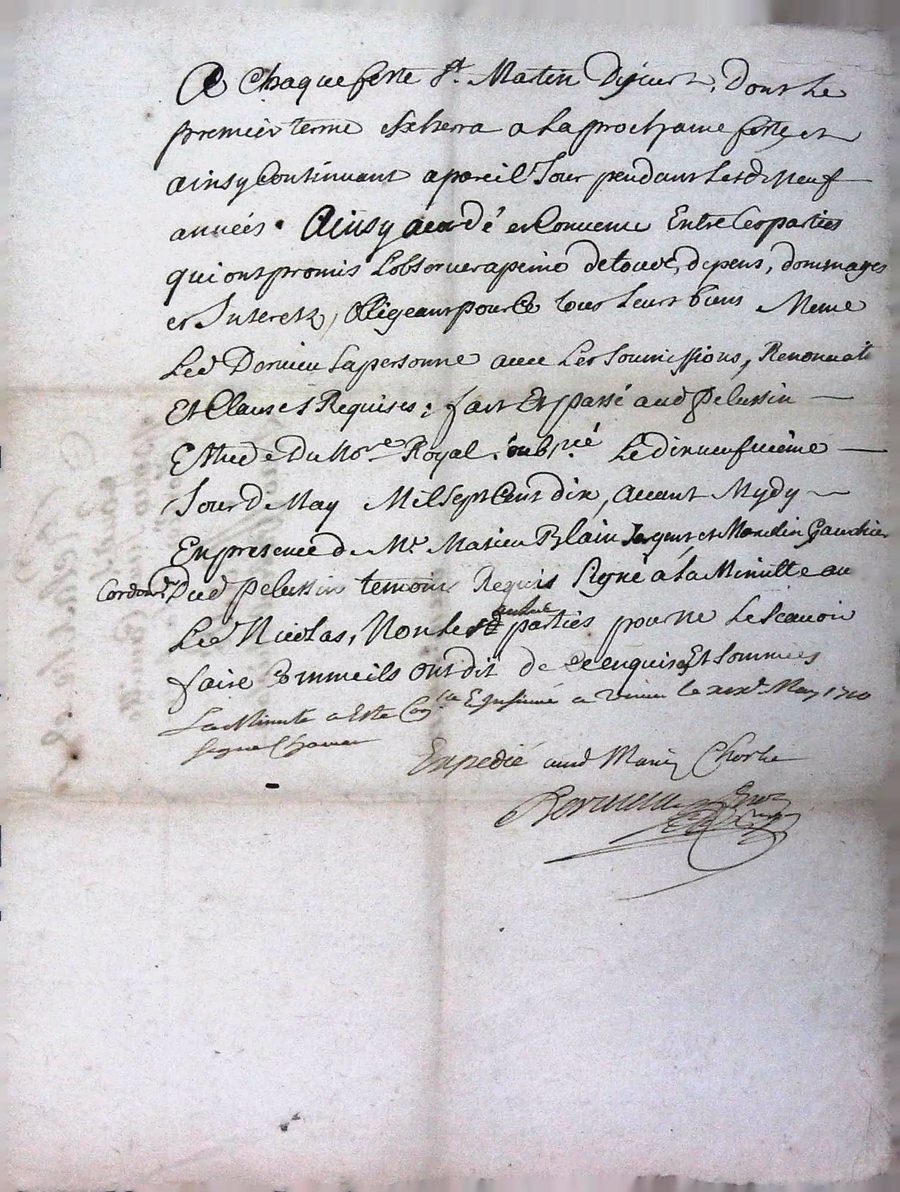 A Chaque feste St. Martin Dhiuert, Dont Le
premier terme Escherra a La prochaine feste et
ainsy Continuant a pareil Jour pendant Lesd neuf
années. Ainsy acordé et Convenu Entre Les parties
qui ont promis Lobseruer a peine de toues, depens, dommages
et Interetz, Obligeant pour Ce tous Leurs biens Meme
Led Dornieu Sa personne auec Les Soumissions, Renonciati
Et Clauses Requises; fait Et passé aud Pelussin
Estude du Nore Royal soubsné Le dixneufuieme
Jour de May Mil Sept Cent dix, auant Mydy
En presence de Me. Matieu Blain Sergent et Mondin Gauthier
Cordonr Dud Pelussin temoins Requis Signé à La Minutte au
Led Nicolas, Non Les autres parties pour ne Le Scauoir
faire Comme ils ont dit de ce enquis Et Sommés
La Minute a Este Con.lée Et Insinué a Virieu le xixe May 1710
Signé
Expedié aud Mariy Chorle